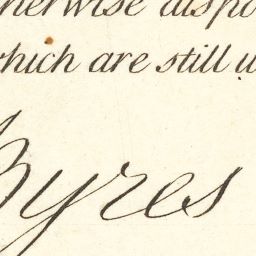 herwise dispo
which are still u
Byres